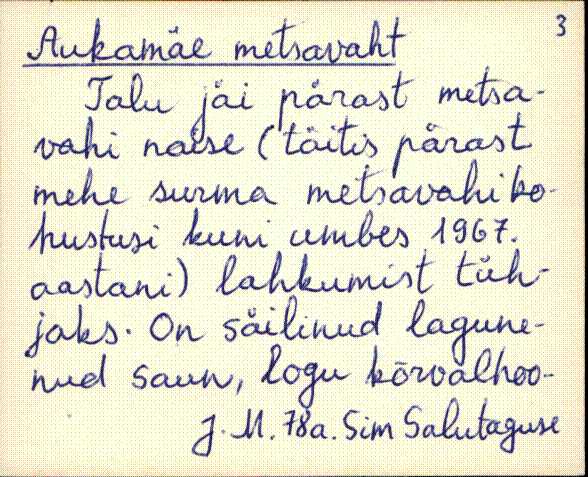 3
Aukamäe metsavaht
Talu jäi pärast metsa-
vahi naise (täitis pärast
mehe surma metsavahi ko-
hustusi kuni umbes 1967.
aastani) lahkumist tüh-
jaks. On säilinud lagune-
nud saun, logu kõrvalhoo-
J. M. 78a. Sim Salutaguse